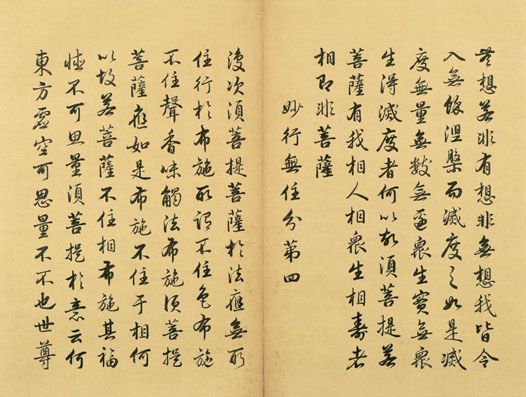 無想若非有想非無想我皆令
入無餘涅槃而滅度之如是滅
度無量無數無邊眾生實無眾
生得滅度者何以故須菩提若
菩薩有我相人相眾生相壽者
相即非菩薩
妙行無住分第四
復次須菩提菩薩於法應無所
住行於布施所謂不住色布施
不住聲香味觸法布施須菩提
菩薩應如是布施不住于相何
以故若菩薩不住相布施其福
德不可思量須菩提於意云何
東方虛空可思量不不也世尊